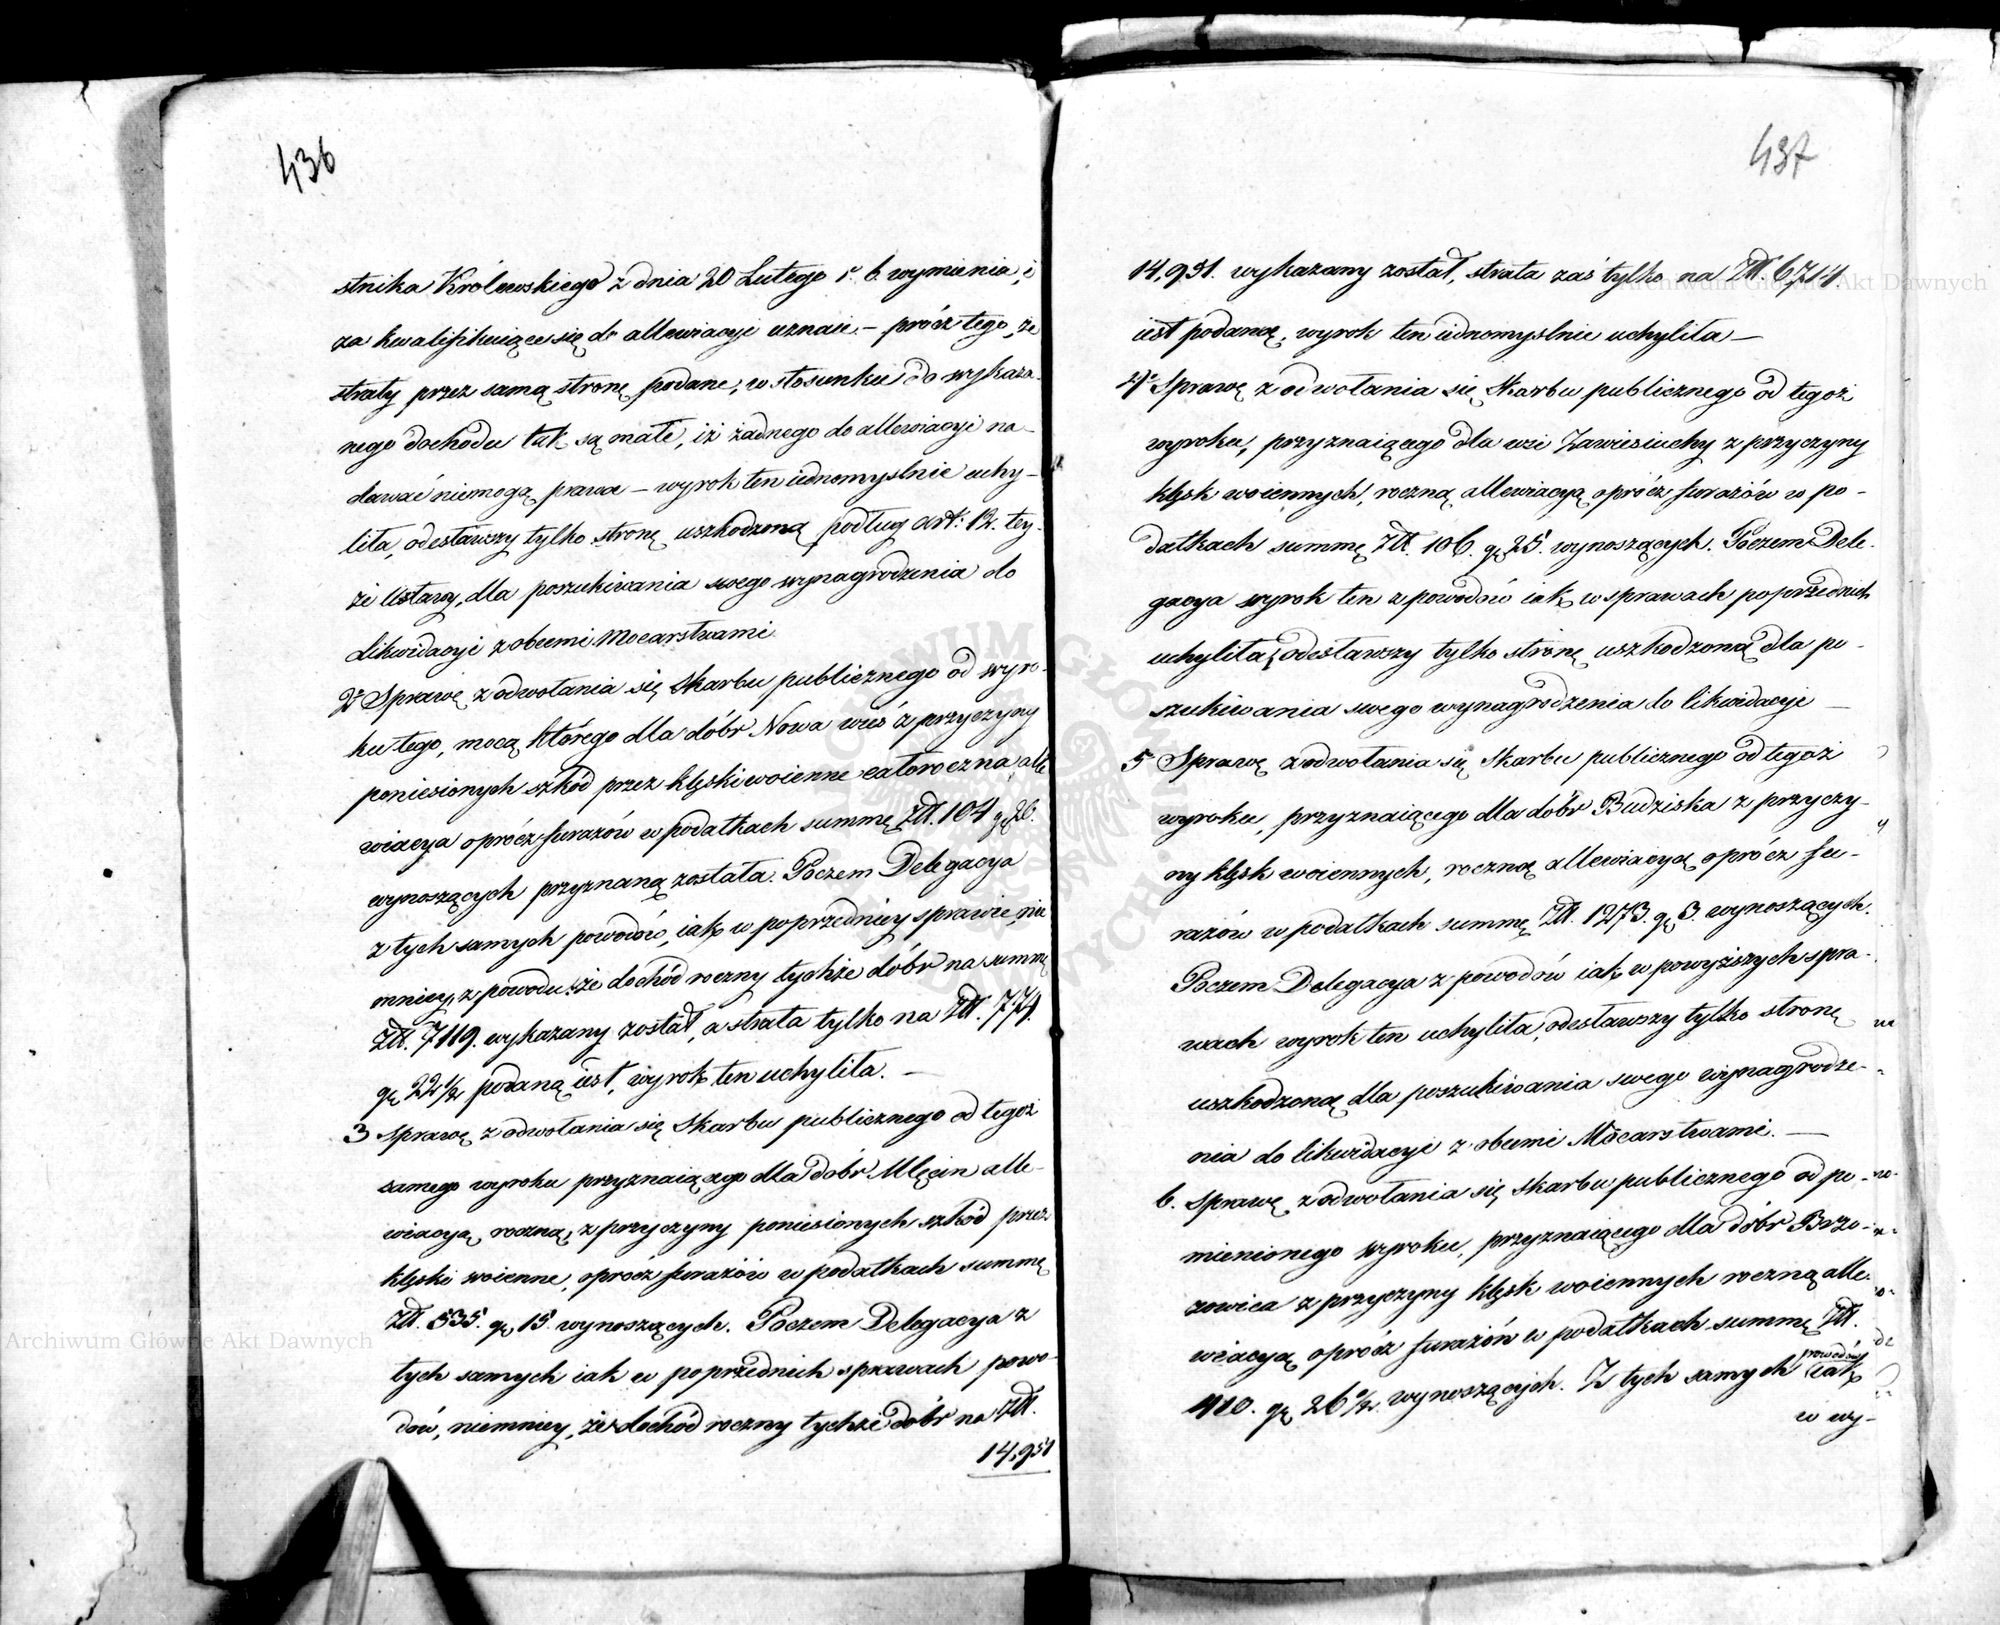 436
stnika Królewskiego z dnia 20 Lutego r. b. wymienia, i
za kwalifikuiące się do allewiacyi uznaie. – prócz tego, że
straty przez samą stronę podane, w stosunku do wykaza-
nego dochodu tak są małe, iż żadnego do allewiacyi na-
dawać niemogą prawa – wyrok ten iednomyslnie uchy-
liła, odesławszy tylko stronę uszkodzoną podług art: 12. tey-
że Ustawy, dla poszukiwania swego wynagrodzenia do
likwidacyi z obcemi Mocarstwami
2° Sprawę z odwołania się Skarbu publicznego od wyro-
ku tego, mocą którego dla dóbr Nowa wieś z przyczyny
poniesionych szkód przez klęski woienne całoroczna alle
wiacya oprócz furażów w podatkach summę Złł. 104 gr 26.
wynoszących przyznaną została. Poczem Delegacya
z tych samych powodów, iak w poprzedniey sprawie, nie
mniey, z powodu, że dochód roczny tychże dóbr na summę
Złł. 7119. wykazany został, a strata tylko na Złł. 774.
gr 22½ podaną iest, wyrok ten uchyliła. –
3 Sprawę z odwołania się Skarbu publicznego od tegoż
samego wyroku przyznaiącego dla dóbr Mlęcin alle-
wiacyą roczną, z przyczyny poniesionych szkód przez
klęski woienne, oprócz furażów w podatkach summę
Złł. 535. gr 15. wynoszących. Poczem Delegacya z
tych samych iak w poprzednich sprawach powo-
dów, niemniey, że dochód roczny tychże dóbr na Złł.
14,951
437
14,951. wykazany został, strata zaś tylko na Złł. 6,714
iest podaną, wyrok ten iednomyslnie uchyliła –
4° Sprawę z odwołania się Skarbu publicznego od tegoż
wyroku, przyznaiącego dla wsi Zawiesiuchy z przyczyny
klęsk woiennych, roczną allewiacyą oprócz furażów w po-
datkach summę Złł. 106. gr 25. wynoszących. Poczem Dele-
gacya wyrok ten z powodów iak w sprawach poprzednich
uchyliła, odesławszy tylko stronę uszkodzoną dla po-
szukiwania swego wynagrodzenia do likwidacyi –
5 Sprawę z odwołania się Skarbu publicznego od tegoż
wyroku, przyznaiącego dla dóbr Budziska z przyczy-
ny klęsk woiennych, roczną allewiacyą oprócz fu-
rażów w podatkach summę Złł. 1273. gr 3. wynoszących.
Poczem Delegacya z powodów iak w powyższych spra-
wach wyrok ten uchyliła, odesławszy tylko stronę
uszkodzoną dla poszukiwania swego wynagrodze-
nia do likwidacyi z obcemi Mocarstwami. –
6. Sprawę z odwołania się Skarbu publicznego od po-
mienionego wyroku, przyznaiącego dla dóbr Brzo-
zowica z przyczyny klęsk woiennych roczną alle-
wiacyą oprócz furażów w podatkach summę Złł.
410. gr 26½. wynoszących. Z tych samych powodów iak
w wy-
Archiwum Główne Akt Dawnych
Archiwum Główne Akt Dawnych